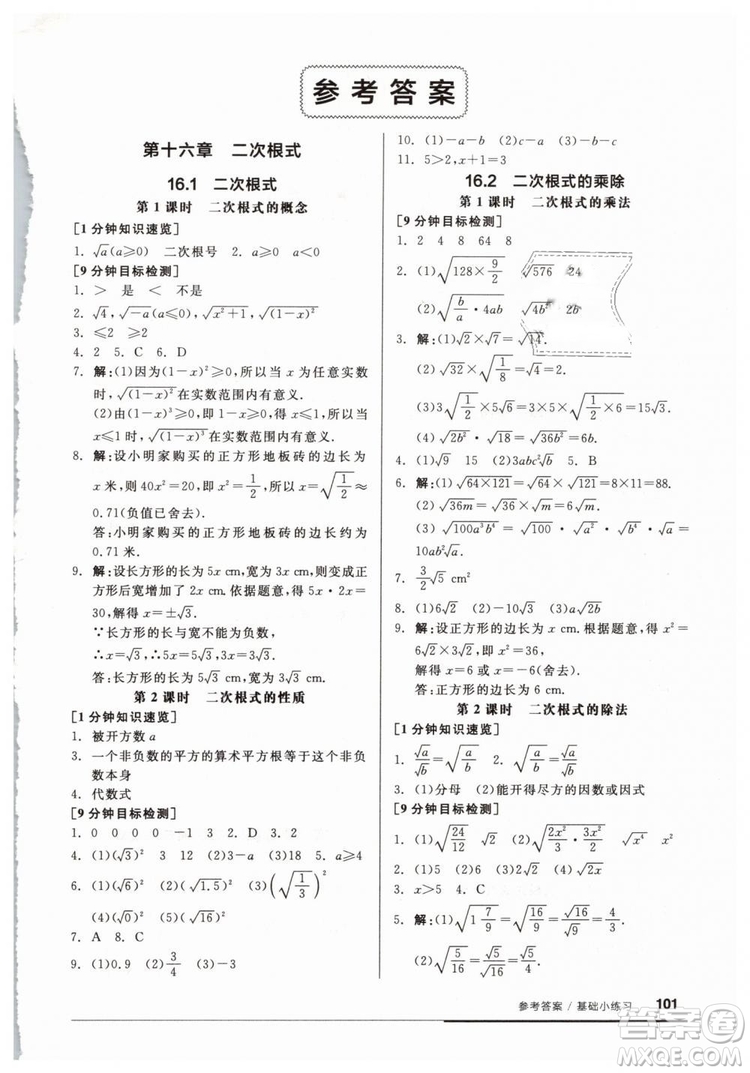 参考答案
第十六章 二次根式
16.1 二次根式
第1课时 二次根式的概念
[1分钟知识速览]
1. √a(a≥0) 二次根号 2. a≥0 a<0
[9分钟目标检测]
1. > 是 < 不是
2. √4,√(-a)(a≤0),√(x²+1),√((1-x)²)
3. ≤2 ≥2
4. 2 5. C 6. D
7. 解:(1)因为(1-x)²≥0,所以当 x 为任意实数
时,√((1-x)²)在实数范围内有意义.
(2)由(1-x)³≥0,即 1-x≥0,得 x≤1,所以当
x≤1 时,√((1-x)³)在实数范围内有意义.
8. 解:设小明家购买的正方形地板砖的边长为
x 米,则 40x²=20,即 x²=1/2,解得 x=±√(1/2)≈
0.71(负值已舍去).
答:小明家购买的正方形地板砖的边长约为
0.71 米.
9. 解:设长方形的长为 5x cm,宽为 2x cm,则 5x·2x=
30,解得 x=±√3.
∵长方形的长与宽不能为负数,
∴x=√3.∴5x=5√3,2x=2√3.
答:长方形的长为 5√3 cm,宽为 2√3 cm.
第2课时 二次根式的性质
[1分钟知识速览]
1. 被开方数 a
3. 一个非负数的平方的算术平方根等于这个非负
数本身
4. 代数式
[9分钟目标检测]
1. 0 0 0 -1 3 2. D 3. 2
4. (1)(√3)² 3 12 (2)-9 (3)18 5. a≥4
6. (1)(√6)² (2)(√1.5)² (3)(√(1/3))²
(4)(√0)² (5)(√16)²
7. A 8. C
9. (1)0.9 (2)3/4 (3)-3
10. (1)-a-b (2)c-a (3)-a-b
11. 5>2,x+1=3
16.2 二次根式的乘除
第1课时 二次根式的乘法
[9分钟目标检测]
1. 2 4 8 64 8
2. (1)√(128×9/2) √576 24
(2)√(b/a·4ab) √(4b²) 2b
3. 解:(1)√2×√7=√14.
(2)√32×√(1/8)=√4=2.
(3)3√(1/2)×5√6=3×5×√(1/2×6)=15√3.
(4)√(2b²)·√18=√(36b²)=6b.
4. (1)√9 15 (2)3abc√2 5. B
6. 解:(1)√(64×121)=√64×√121=8×11=88.
(2)√(36m)=√36·√m=6√m.
(3)√(100a³b⁴)=√100·√a²·√a·√b⁴=
10ab²√a.
7. 3/2√5 cm²
8. (1)6√2 (2)-10√3 (3)a√(2b)
9. 解:设正方形的边长为 x cm.根据题意,得 x²=
6√2×3√2,即 x²=36,
解得 x=6 或 x=-6(舍去).
答:正方形的边长为 6 cm.
第2课时 二次根式的除法
[1分钟知识速览]
1. √a/√b=√(a/b) 2. √(a/b)=√a/√b
3. (1)分母 (2)能开得尽方的因数或因式
[9分钟目标检测]
1. (1)√(24/12) √2 (2)√(2x²/3·3x²/2) √x⁴ x²
2. (1)5 (2)√6 (3)√2
3. x>5 4. C
5. 解:(1)√(1 7/9)=√(16/9)=√16/√9=4/3.
(2)√(5/16)=√5/√16=√5/4.
参考答案 / 基础小练习 101
答案圈
MXQE.COM